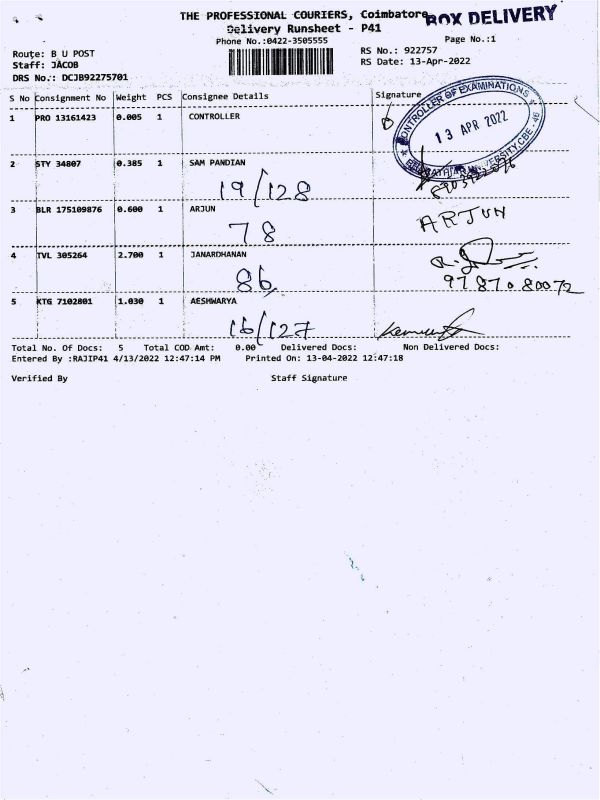 THE PROFESSIONAL COURIERS, Coimbatore
BOX DELIVERY
Delivery Runsheet - P41
Phone No.:0422-3505555
Page No.:1
Route: B U POST
RS No.: 922757
Staff: JACOB
RS Date: 13-Apr-2022
DRS No.: DCJB92275701
S No Consignment No Weight PCS Consignee Details Signature
1 PRO 13161423 0.005 1 CONTROLLER
CONTROLLER OF EXAMINATIONS
13 APR 2022
2 STY 34807 0.385 1 SAM PANDIAN
19/128
3 BLR 175109876 0.600 1 ARJUN
ARJUN
78
4 TVL 305264 2.700 1 JANARDHANAN
86
9787080072
5 KTG 7102801 1.030 1 AESHWARYA
16/127
Total No. Of Docs: 5 Total COD Amt: 0.00 Delivered Docs: Non Delivered Docs:
Entered By :RAJIP41 4/13/2022 12:47:14 PM Printed On: 13-04-2022 12:47:18
Verified By Staff Signature